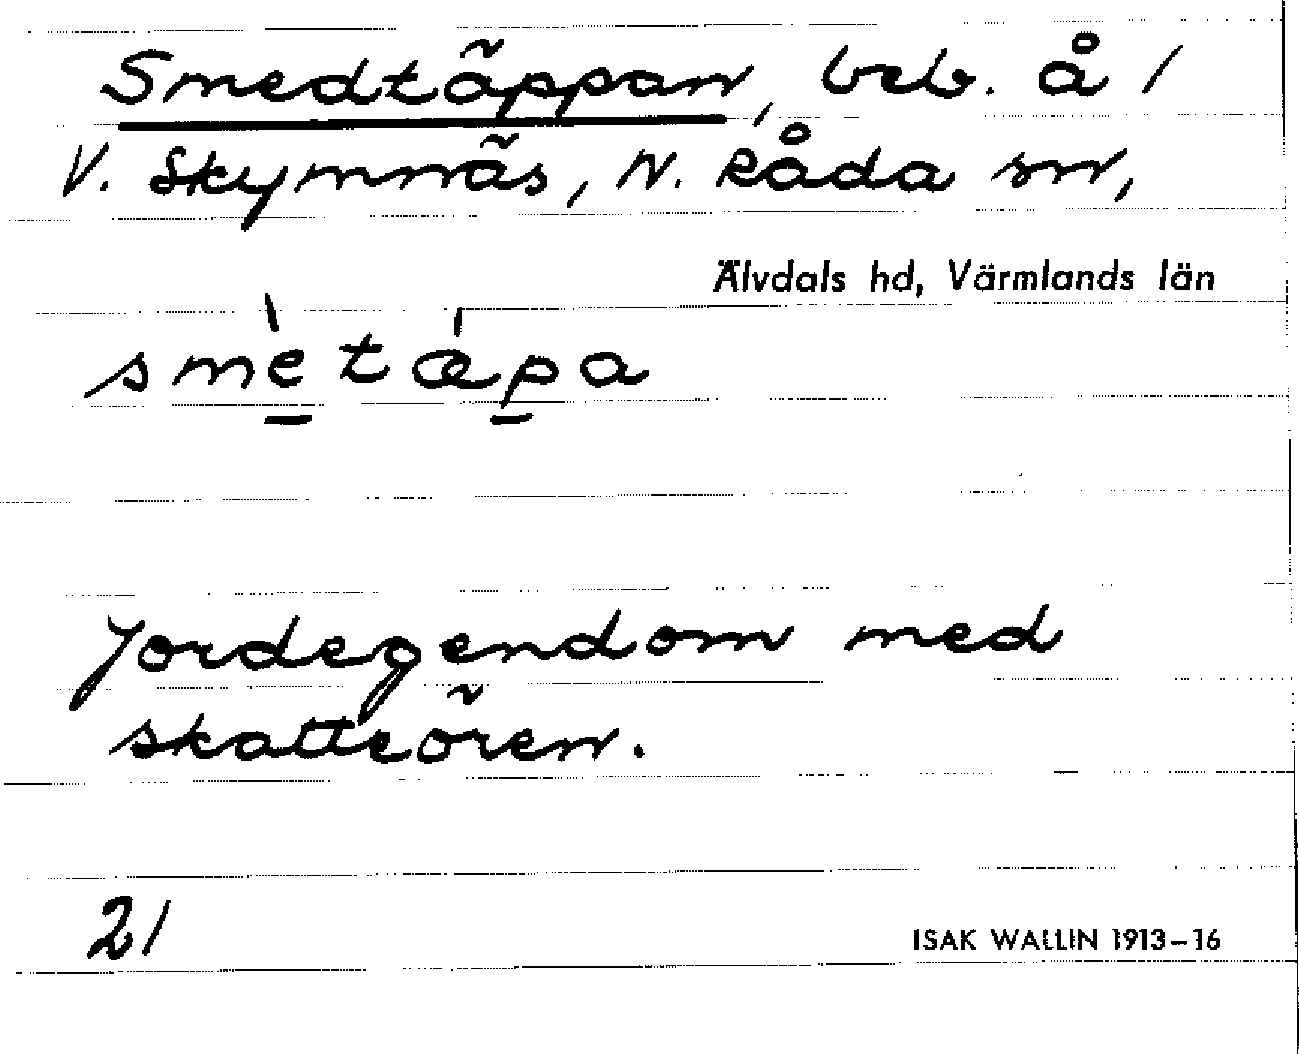 Smedtäppan, beb. å 1
V. Skymnäs, N. Råda sn,
Älvdals hd, Värmlands län
smètǽpa
Jordegendom med
skatteören.
21
ISAK WALLIN 1913–16